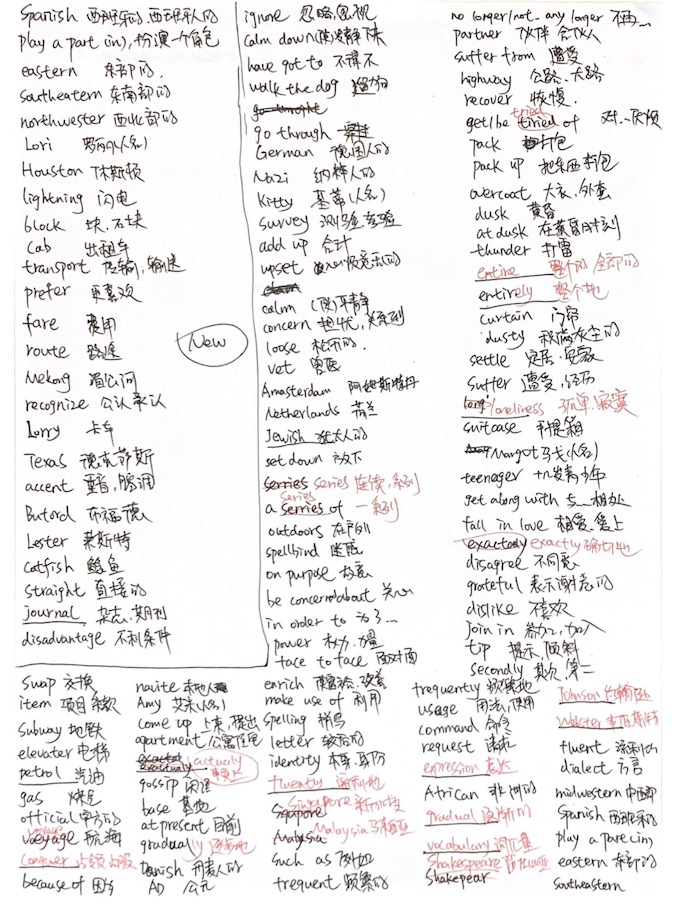 Spanish 西班牙的 西班牙人的
play a part (in), 扮演一个角色
eastern 东部的,
southeatern 东南部的
northwester 西北部的
Lori 罗丽(人名)
Houston 休斯顿
lightning 闪电
block 块.石块
cab 出租车
transport 运输,输送
prefer 更喜欢
fare 费用
route 路途
Mekong 湄公河
recognize 公认承认
Lorry 卡车
Texas 德克萨斯
accent 重音,腔调
Butord 布福德
Lester 莱斯特
catfish 鲶鱼
straight 直接的
journal 杂志.期刊
disadvantage 不利条件
New
ignore 忽略,忽视
calm down (使)平静下来
have got to 不得不
walk the dog 遛狗
go through
German 德国人的
Nazi 纳粹人的
Kitty 基蒂(人名)
survey 测验
add up 合计
upset
calm (使)平静
concern 担忧,关系到
loose 松币的.
vet 兽医
Amsterdam 阿姆斯特丹
Netherlands 荷兰
Jewish 犹太人的
set down 放下
serries series 连续,系列
series
a serries of 一系列
outdoors 在户外
spellbind 迷惑
on purpose 故意
be concerned about 关心
in order to 为了...
power 权力.力量
face to face 面对面
no longer/not...any longer 不再...
partner 伙伴 合伙人
suffer from 遭受
highway 公路.大路
recover 恢复.
tried
get/be tiried of 对...厌烦
pack 打包
pack up 把东西打包
overcoat 大衣.外套
dusk 黄昏
at dusk 在黄昏时刻
thunder 打雷
entire 整个的 全部的
entirely 整个地
curtain 门帘
dusty 积满灰尘的
settle 定居.
suffer 遭受,经历
loneliness 孤单.寂寞
suitcase 手提箱
Margot 马戈(人名)
teenager 十几岁青少年
get along with 与...相处
fall in love 相爱.爱上
exactaly exactly 确切地
disagree 不同意
grateful 表示谢意的
dislike 不喜欢
join in 参加,加入
tip 提示,倾斜
secondly 其次,第二
swap 交换
item 项目 条款
subway 地铁
elevater 电梯
petrol 汽油
gas 煤气
official 官方的
voyage
voeyage 航海
Conquer 占领 占服
because of 因为
navite 本地人
Amy 艾米(人名)
come up 上来,提出
apartment 公寓住宅
actually
gossip 闲话
base 基地
at present 目前
gradualy
Danish 丹麦人的
AD 公元
enrich 使富裕,改善
make use of 利用
spelling 拼写
letter 较后的
identity 本身.身份
fluently 流利地
Singapore 新加坡
Sigapore
Malaysia 马来西亚
Malasia
such as 例如
frequent 频繁的
frequently 频繁地
usage 用法,使用
command 命令
request 请求
expression 表达
African 非洲的
gradual 逐渐的
vocabulary 词汇量
Shakespeare 莎士比亚
Shakepear
Johnson 约翰逊
Webster 韦伯斯特
fluent 流利的
dialect 方言
midwestern 中西部
Spanish 西班牙的
play a part (in)
eastern 东部的
southeastern